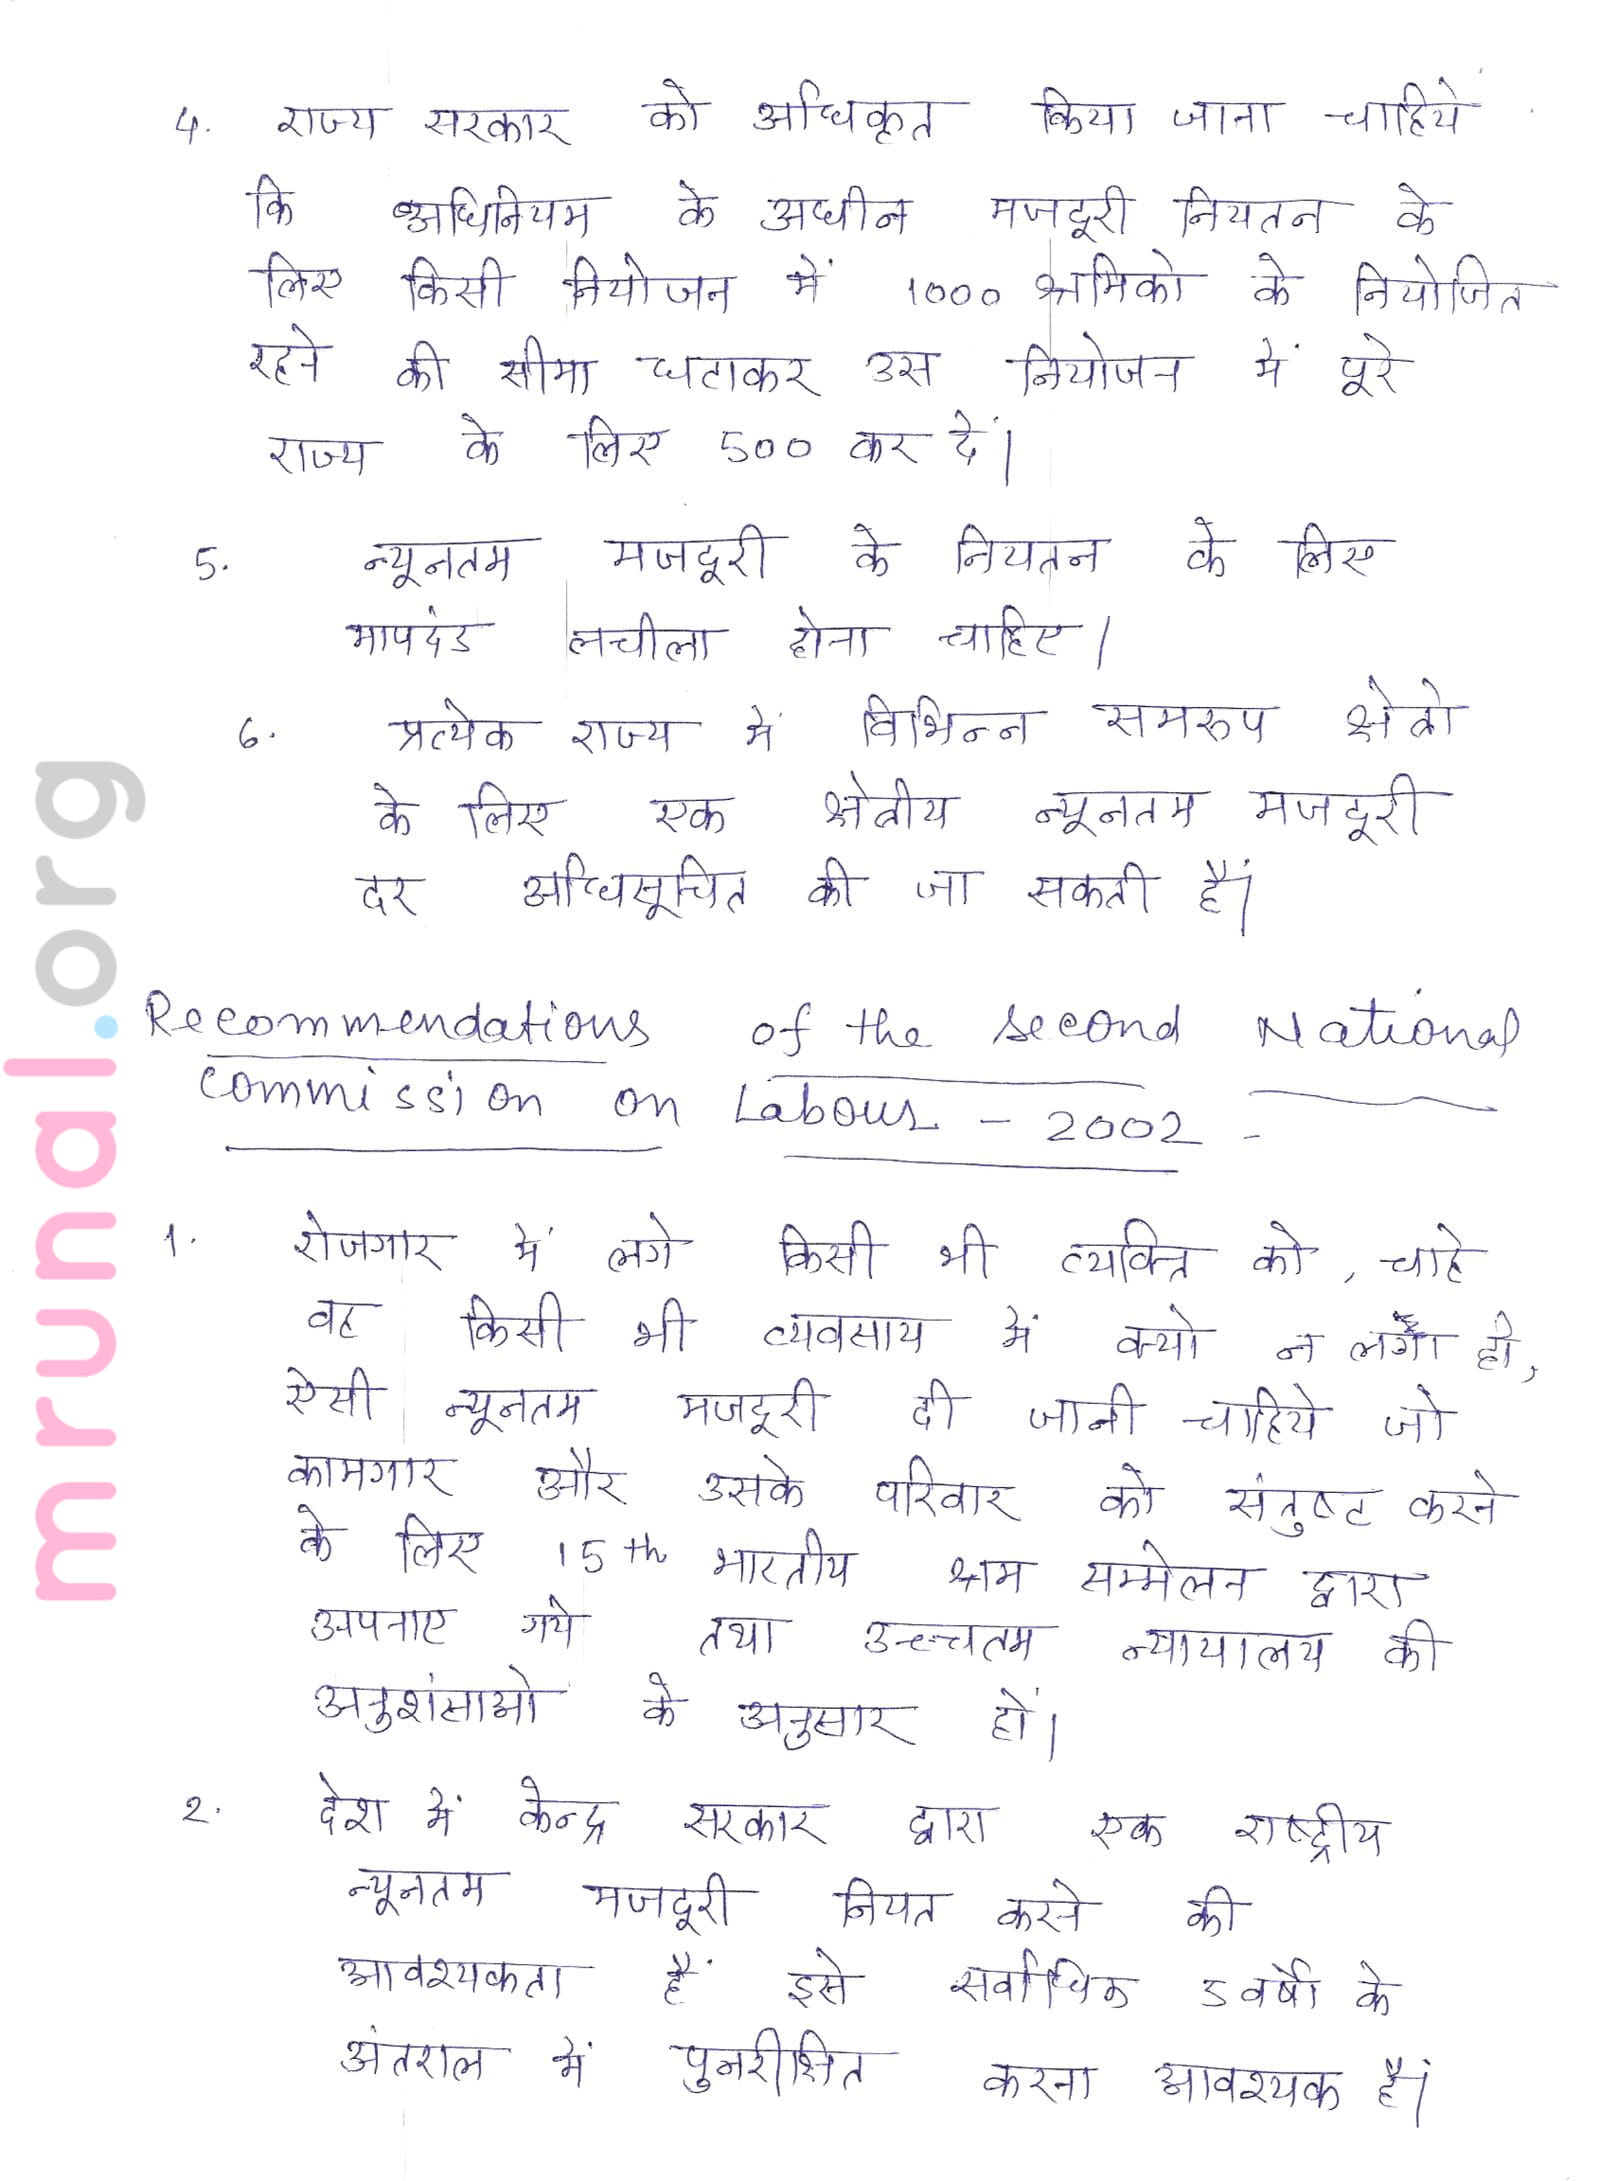 4. राज्य सरकार को अधिकृत किया जाना चाहिये
कि अधिनियम के अधीन मजदूरी नियतन के
लिए किसी नियोजन में 1000 श्रमिको के नियोजित
रहने की सीमा घटाकर उस नियोजन में पूरे
राज्य के लिए 500 कर दें।
5. न्यूनतम मजदूरी के नियतन के लिए
मापदंड लचीला होना चाहिए।
6. प्रत्येक राज्य में विभिन्न समरुप क्षेत्रो
के लिए एक क्षेत्रीय न्यूनतम मजदूरी
दर अधिसूचित की जा सकती हैं।
Recommendations of the second National
Commission on Labour - 2002 -
1. रोजगार में लगे किसी भी व्यक्ति को, चाहे
वह किसी भी व्यवसाय में क्यो न लगा हो,
ऐसी न्यूनतम मजदूरी दी जानी चाहिये जो
कामगार और उसके परिवार को संतुष्ट करने
के लिए 15th भारतीय श्रम सम्मेलन द्वारा
अपनाए गये तथा उच्चतम न्यायालय की
अनुशंसाओ के अनुसार हों।
2. देश में केन्द्र सरकार द्वारा एक राष्ट्रीय
न्यूनतम मजदूरी नियत करने की
आवश्यकता हैं इसे सर्वाधिक 5 वर्षो के
अंतराल में पुनरीक्षित करना आवश्यक हैं।
mrunal.org